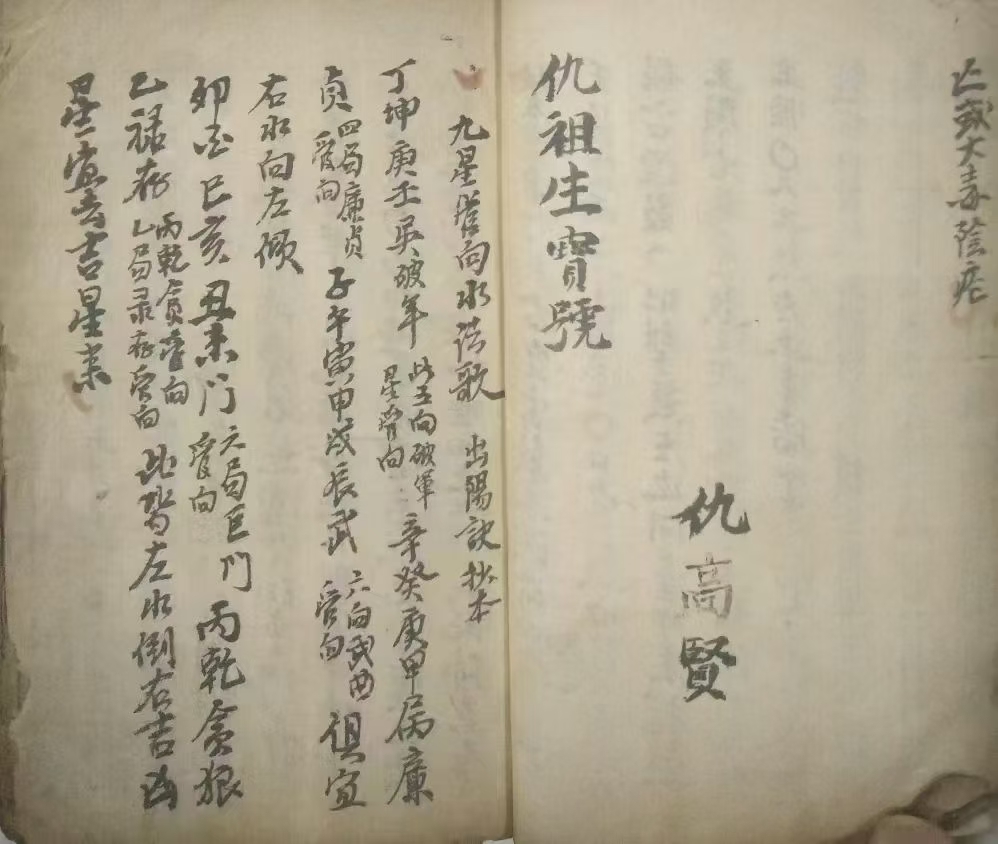 亡歲大毒陰疟
仇高賢
仇祖生寶號
九星管向水法歌 出陽訣抄本
丁坤庚壬吳破年 此五向破軍星管向 辛癸庚甲屬廉
貞 四局廉貞管向 子午寅甲戍辰武 六向武曲管向 俱宜
右水向左倾
卯酉巳亥丑未门 六局巨门管向 丙乾貪狼
乙禄存 丙乾貪管向 乙局录存管向 此皆左水倒右吉凶
星一宜去吉星来